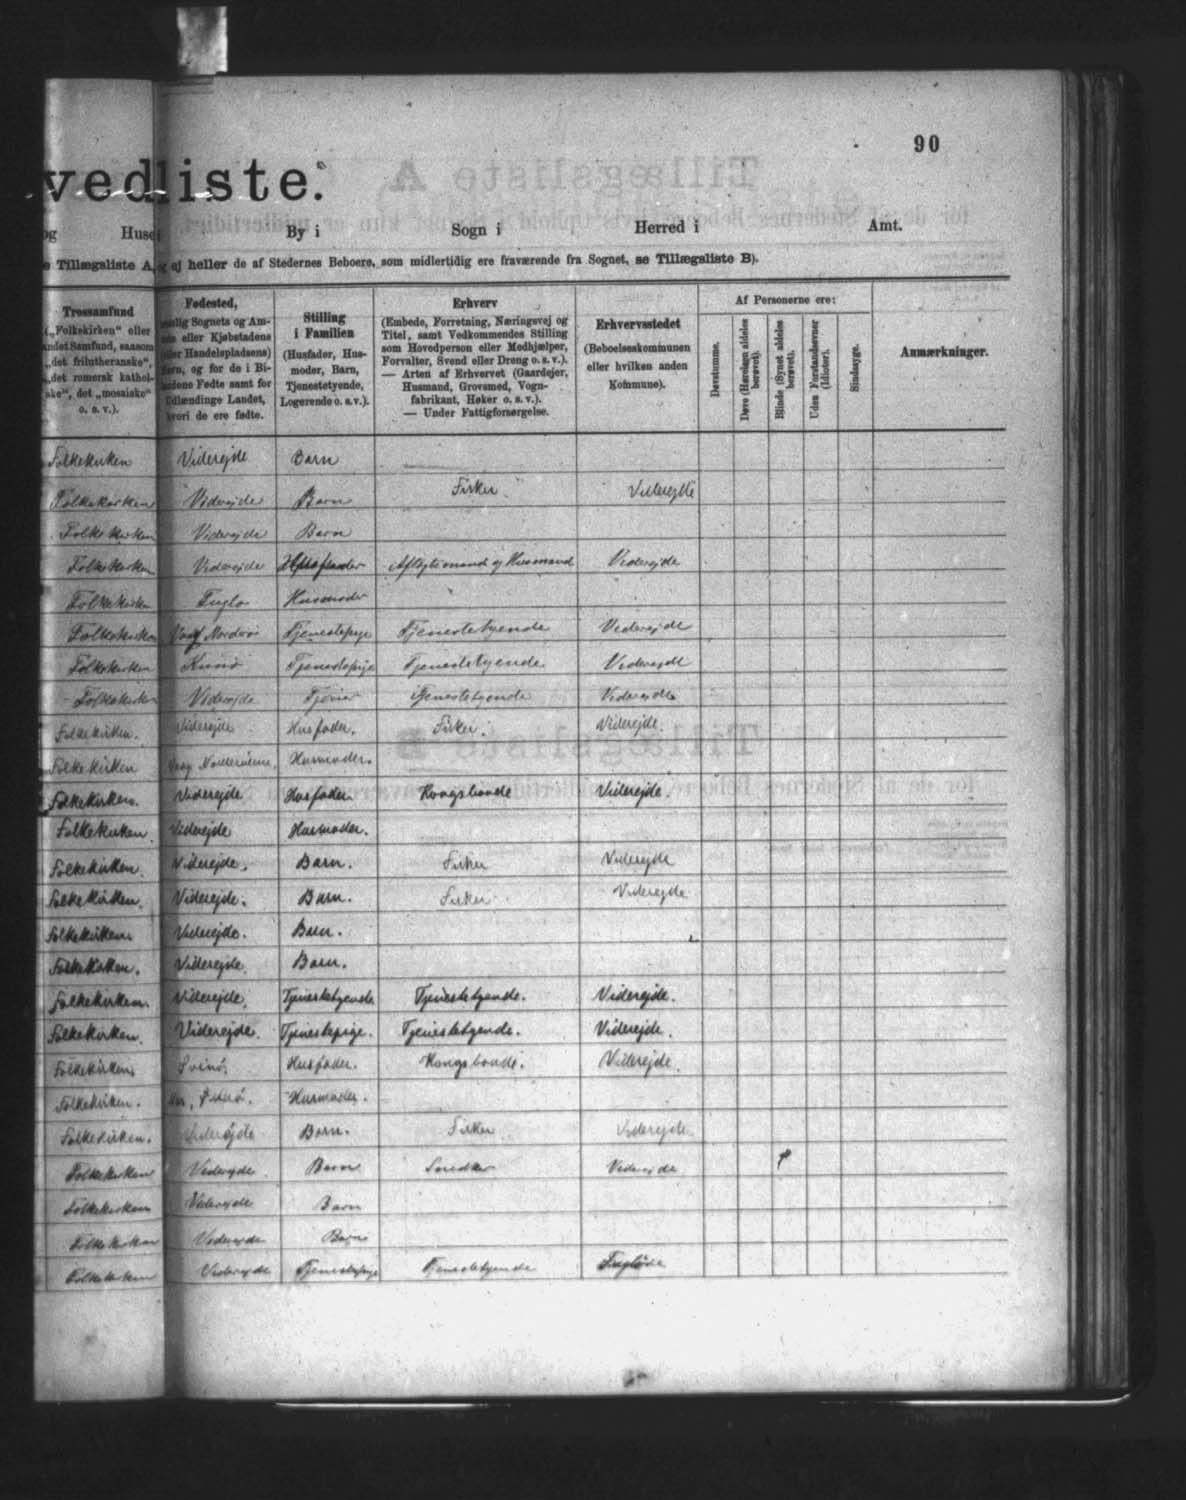 90
vedliste.
og Huse i By i Sogn i Herred i Amt.
e Tillægsliste A, og ej heller de af Stedernes Beboere, som midlertidig ere fraværende fra Sognet, se Tillægsliste B).
Trossamfund
(„Folkekirken“ eller
andet Samfund, saasom
„det frilutheranske“,
„det romersk kathol-
ske“, det „mosaiske“
o. s. v.).
Fødested,
nemlig Sognets og Am-
eller Kjøbstadens
(eller Handelspladsens)
Navn, og for de i Bi-
landene Fødte samt for
Udlændinge Landet,
hvori de ere fødte.
Stilling
i Familien
(Husfader, Hus-
moder, Barn,
Tjenestetyende,
Logerende o. s. v.).
Erhverv
(Embede, Forretning, Næringsvej og
Titel, samt Vedkommendes Stilling
som Hovedperson eller Medhjælper,
Forvalter, Svend eller Dreng o. s. v.).
— Arten af Erhvervet (Gaardejer,
Husmand, Grovsmed, Vogn-
fabrikant, Høker o. s. v.).
— Under Fattigforsørgelse.
Erhvervsstedet
(Beboelseskommunen
eller hvilken anden
Kommune).
Af Personerne ere:
Døvstumme.
Døve (Hørelsen aldeles
berøvet).
Blinde (Synet aldeles
berøvet).
Uden Forstandsevner
(Idioter).
Sindssyge.
Anmærkninger.
Folkekirken Viderejde Barn
Folkekirken Viderejde Barn Fisker Viderejde
Folkekirken Viderejde Barn
Folkekirken Viderejde Husfader Aftægtsmand og Husmand Viderejde
Folkekirken Fuglø Husmoder
Folkekirken Nordrø Tjenestepige Tjenestetyende Viderejde
Folkekirken Kunø Tjenestepige Tjenestetyende Viderejde
Folkekirken Viderejde Tjener Tjenestetyende Viderejde
Folkekirken. Viderejde Husfader. Fisker. Viderejde.
Folkekirken Vaag Husmoder.
Folkekirken. Viderejde Husfader Kongsbonde Viderejde.
Folkekirken Viderejde Husmoder.
Folkekirken. Viderejde. Barn. Fisker Viderejde
Folkekirken. Viderejde. Barn. Fisker. Viderejde
Folkekirken. Viderejde. Barn.
Folkekirken. Viderejde. Barn.
Folkekirken. Viderejde. Tjenestetyende Tjenestetyende. Viderejde.
Folkekirken. Viderejde. Tjenestepige. Tjenestetyende. Viderejde.
Folkekirken. Svinø. Husfader. Kongsbonde. Viderejde.
Folkekirken. Husmoder.
Folkekirken. Viderejde Barn. Fisker Viderejde.
Folkekirken Viderejde Barn Snedker Viderejde
Folkekirken Viderejde Barn
Folkekirken Viderejde Barn
Folkekirken Viderejde Tjenestepige Tjenestetyende Fuglø